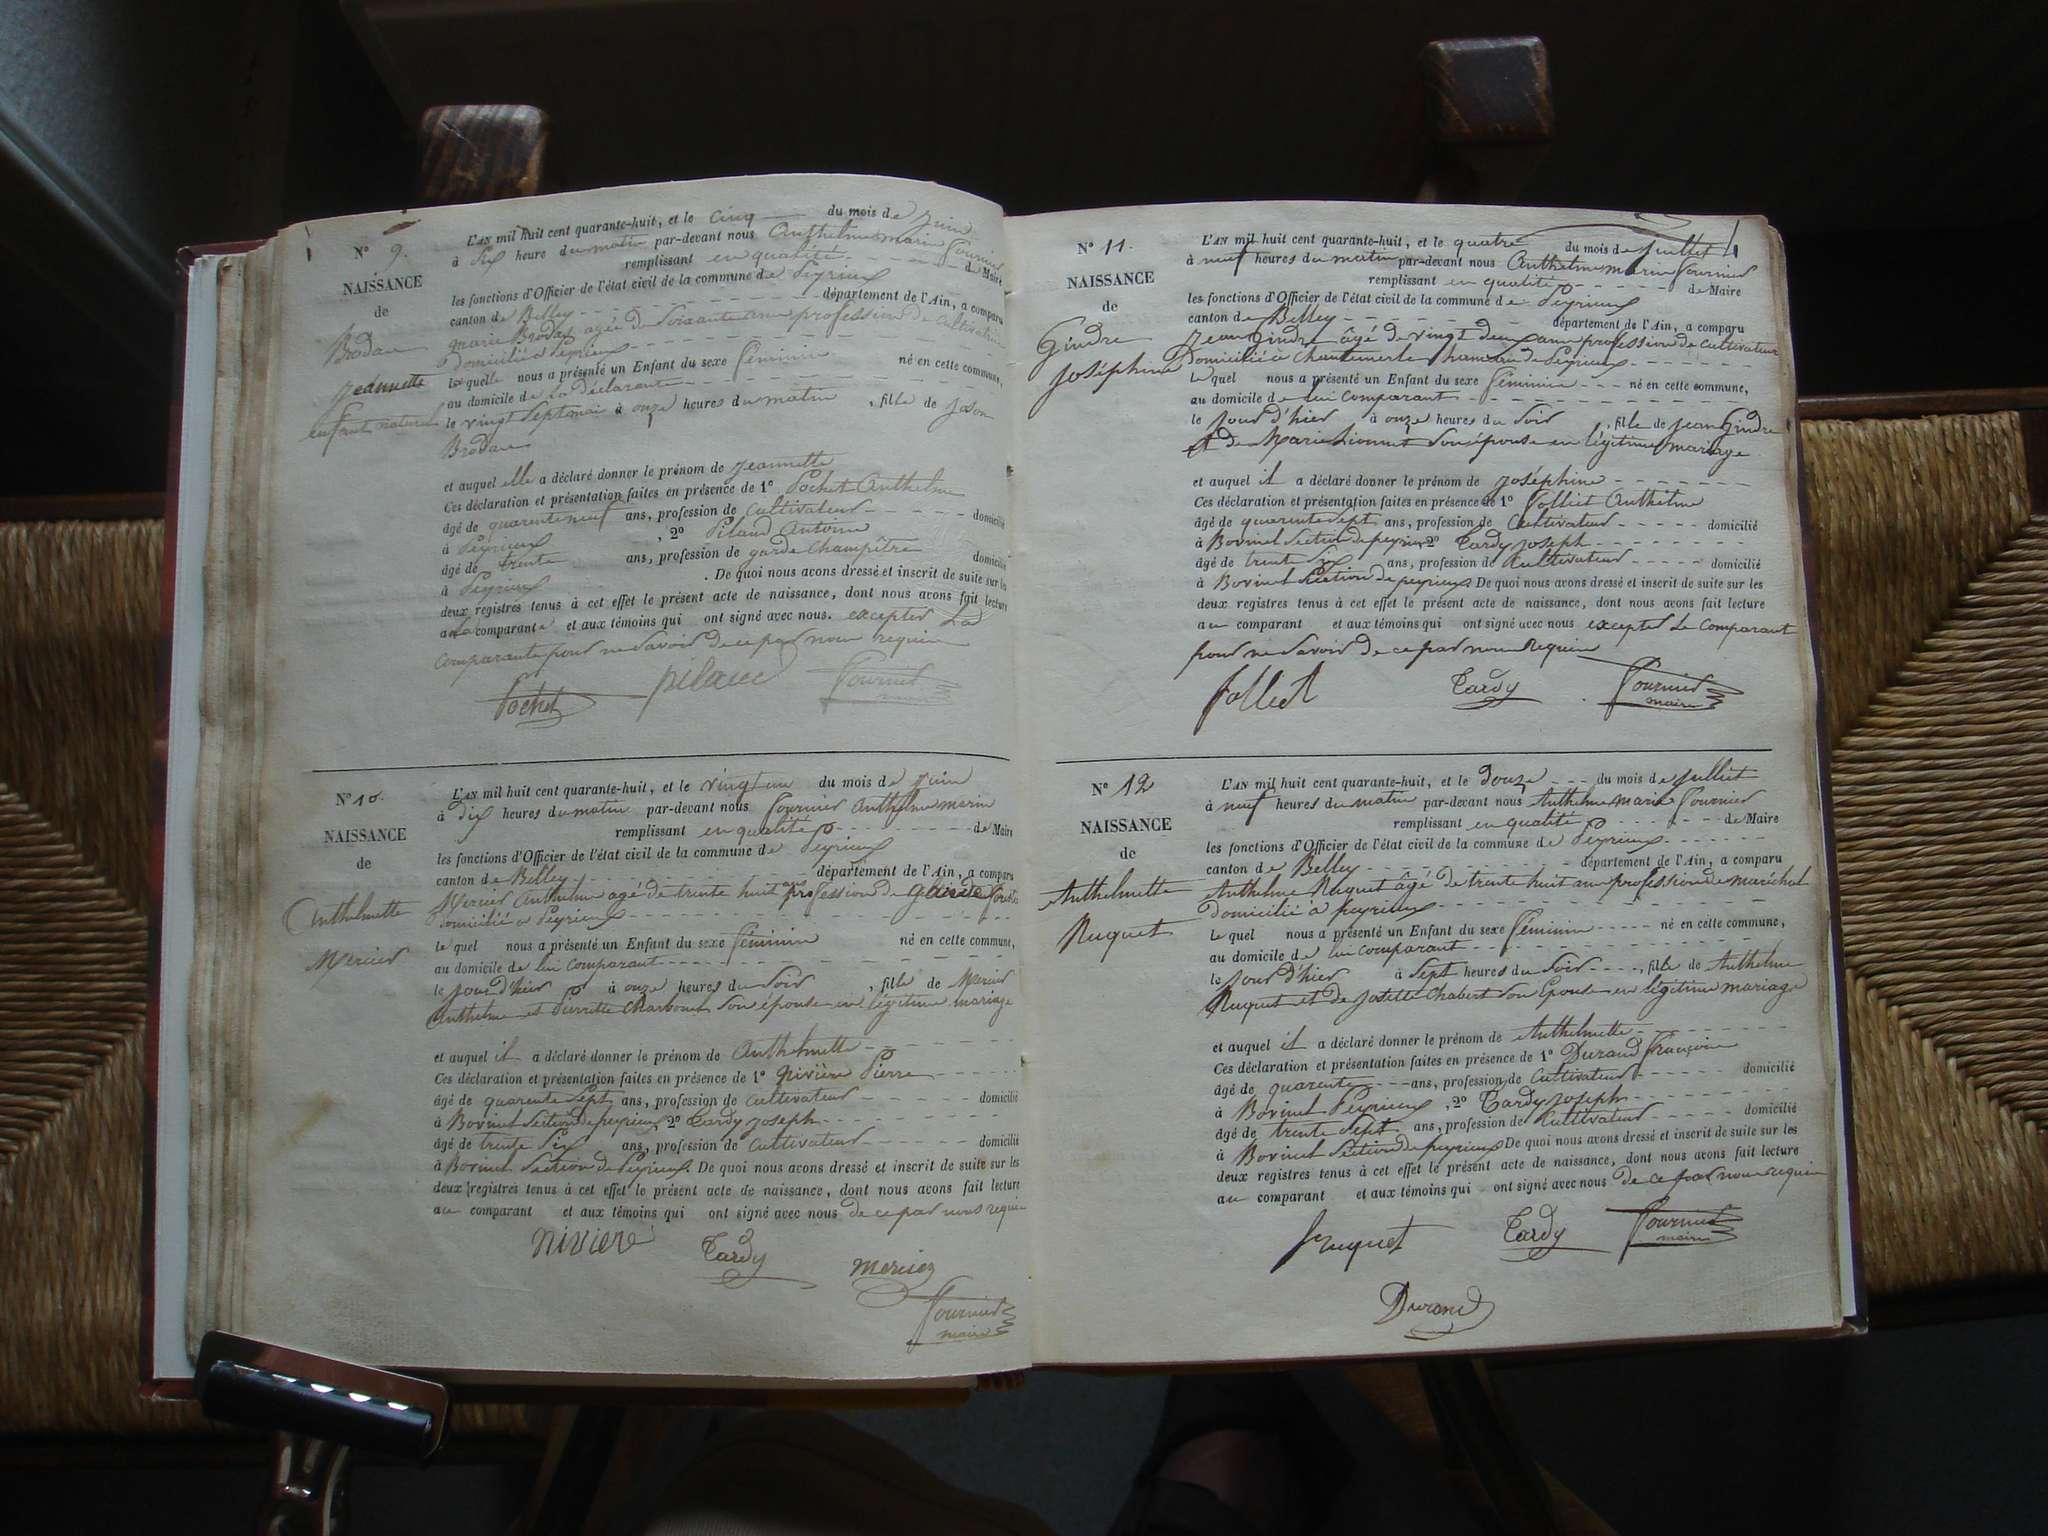 N° 9.
NAISSANCE
de
Brodan
Jeannette
enfant naturel
L'AN mil huit cent quarante-huit, et le cinq du mois de Juin
à Six heure du matin par-devant nous Anthelme marin Fournier
remplissant en qualité de Maire
les fonctions d'Officier de l'état civil de la commune de Peyrieux
canton de Belley département de l'Ain, a comparu
marie Brodan agée de soixante ans profession de cultivatrice
domicilié à Peyrieux
laquelle nous a présenté un Enfant du sexe féminin né en cette commune,
au domicile de La déclarante
le vingt Sept mai à onze heures du matin, fille de
Brodan
et auquel elle a déclaré donner le prénom de Jeannette
Ces déclaration et présentation faites en présence de 1° Pochet Anthelme
âgé de quarente neuf ans, profession de cultivateur domicilié
à Peyrieux, 2° Piland Antoine
âgé de trente ans, profession de garde champêtre domicilié
à Peyrieux. De quoi nous avons dressé et inscrit de suite sur les
deux registres tenus à cet effet le présent acte de naissance, dont nous avons fait lecture
a la comparante et aux témoins qui ont signé avec nous. excepter La
comparante pour ne Savoir de ce par nous requise
Pochet Fournier
maire
N° 10.
NAISSANCE
de
Anthelmette
Mercier
L'AN mil huit cent quarante-huit, et le vingt un du mois de Juin
à dix heures du matin par-devant nous Fournier Anthelme marin
remplissant en qualité de Maire
les fonctions d'Officier de l'état civil de la commune de Peyrieux
canton de Belley département de l'Ain, a comparu
Mercier Anthelme agé de trente huit ans profession de garde
domicilié à Peyrieux
le quel nous a présenté un Enfant du sexe féminin né en cette commune,
au domicile de lui comparant
le jour d'hier à onze heures du Soir, fille de Mercier
Anthelme et Pierrette Charbonet son épouse en légitime mariage
et auquel il a déclaré donner le prénom de Anthelmette
Ces déclaration et présentation faites en présence de 1° Nivière Pierre
âgé de quarente Sept ans, profession de cultivateur domicilié
à Bovinel Section de peyrieux 2° Tardy joseph
âgé de trente Six ans, profession de cultivateur domicilié
à Bovinel Section de Peyrieux. De quoi nous avons dressé et inscrit de suite sur les
deux registres tenus à cet effet le présent acte de naissance, dont nous avons fait lecture
au comparant et aux témoins qui ont signé avec nous de ce par nous requis
nivière Tardy mercier
Fournier
maire
N° 11.
NAISSANCE
de
Gindre
Joséphine
L'AN mil huit cent quarante-huit, et le quatre du mois de Juillet
à neuf heures du matin par-devant nous Anthelme marin Fournier
remplissant en qualité de Maire
les fonctions d'Officier de l'état civil de la commune de Peyrieux
canton de Belley département de l'Ain, a comparu
Jean Gindre âgé de vingt deux ans profession de cultivateur
domicilié à Chantemerle hameau de Peyrieux
le quel nous a présenté un Enfant du sexe féminin né en cette commune,
au domicile de lui comparant
le jour d'hier à onze heures du Soir, fille de Jean Gindre
et de Marie son épouse en légitime mariage
et auquel il a déclaré donner le prénom de Joséphine
Ces déclaration et présentation faites en présence de 1° Folliet Anthelme
âgé de quarente sept ans, profession de Cultivateur domicilié
à Bovinel Section de peyrieux 2° Tardy joseph
âgé de trente Six ans, profession de Cultivateur domicilié
à Bovinel Section de peyrieux. De quoi nous avons dressé et inscrit de suite sur les
deux registres tenus à cet effet le présent acte de naissance, dont nous avons fait lecture
au comparant et aux témoins qui ont signé avec nous excepter le comparant
pour ne Savoir de ce par nous Requis
folliet Tardy Fournier
maire
N° 12
NAISSANCE
de
Anthelmette
Ruquet
L'AN mil huit cent quarante-huit, et le douze du mois de Julliet
à neuf heures du matin par-devant nous Anthelme marin Fournier
remplissant en qualité de Maire
les fonctions d'Officier de l'état civil de la commune de Peyrieux
canton de Belley département de l'Ain, a comparu
Anthelme Ruquet âgé de trente huit ans profession de maréchal
domicilié à peyrieux
le quel nous a présenté un Enfant du sexe féminin né en cette commune,
au domicile de lui comparant
le jour d'hier à Sept heures du Soir, fille de Anthelme
Ruquet et de Josette Chabert son Epouse en légitime mariage
et auquel il a déclaré donner le prénom de Anthelmette
Ces déclaration et présentation faites en présence de 1° Durand François
âgé de quarente ans, profession de Cultivateur domicilié
à Bovinel Peyrieux, 2° Tardy joseph
âgé de trente Sept ans, profession de Cultivateur domicilié
à Bovinel Section de peyrieux De quoi nous avons dressé et inscrit de suite sur les
deux registres tenus à cet effet le présent acte de naissance, dont nous avons fait lecture
au comparant et aux témoins qui ont signé avec nous de ce par nous requis
Tardy Fournier
maire
Durand